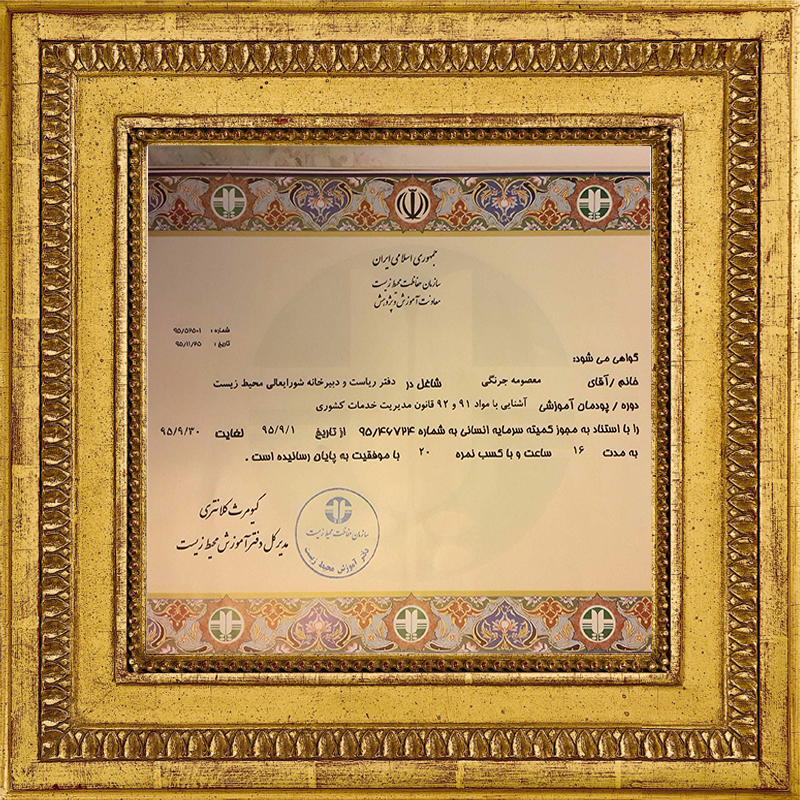 جمهوری اسلامی ایران
سازمان حفاظت محیط زیست
معاونت آموزش و پژوهش
شماره : ۹۵/۵۶۵۰۱
تاریخ : ۹۵/۱۱/۲۵
گواهی می شود:
خانم /آقای معصومه جرنگی شاغل در دفتر ریاست و دبیرخانه شورایعالی محیط زیست
دوره / پودمان آموزشی آشنایی با مواد ۹۱ و ۹۲ قانون مدیریت خدمات کشوری
را با استناد به مجوز کمیته سرمایه انسانی به شماره ۹۵/۴۶۷۲۴ از تاریخ ۹۵/۹/۱ لغایت ۹۵/۹/۳۰
به مدت ۱۶ ساعت و با کسب نمره ۲۰ با موفقیت به پایان رسانیده است .
کیومرث کلانتری
مدیر کل دفتر آموزش محیط زیست
سازمان حفاظت محیط زیست
دفتر آموزش محیط زیست